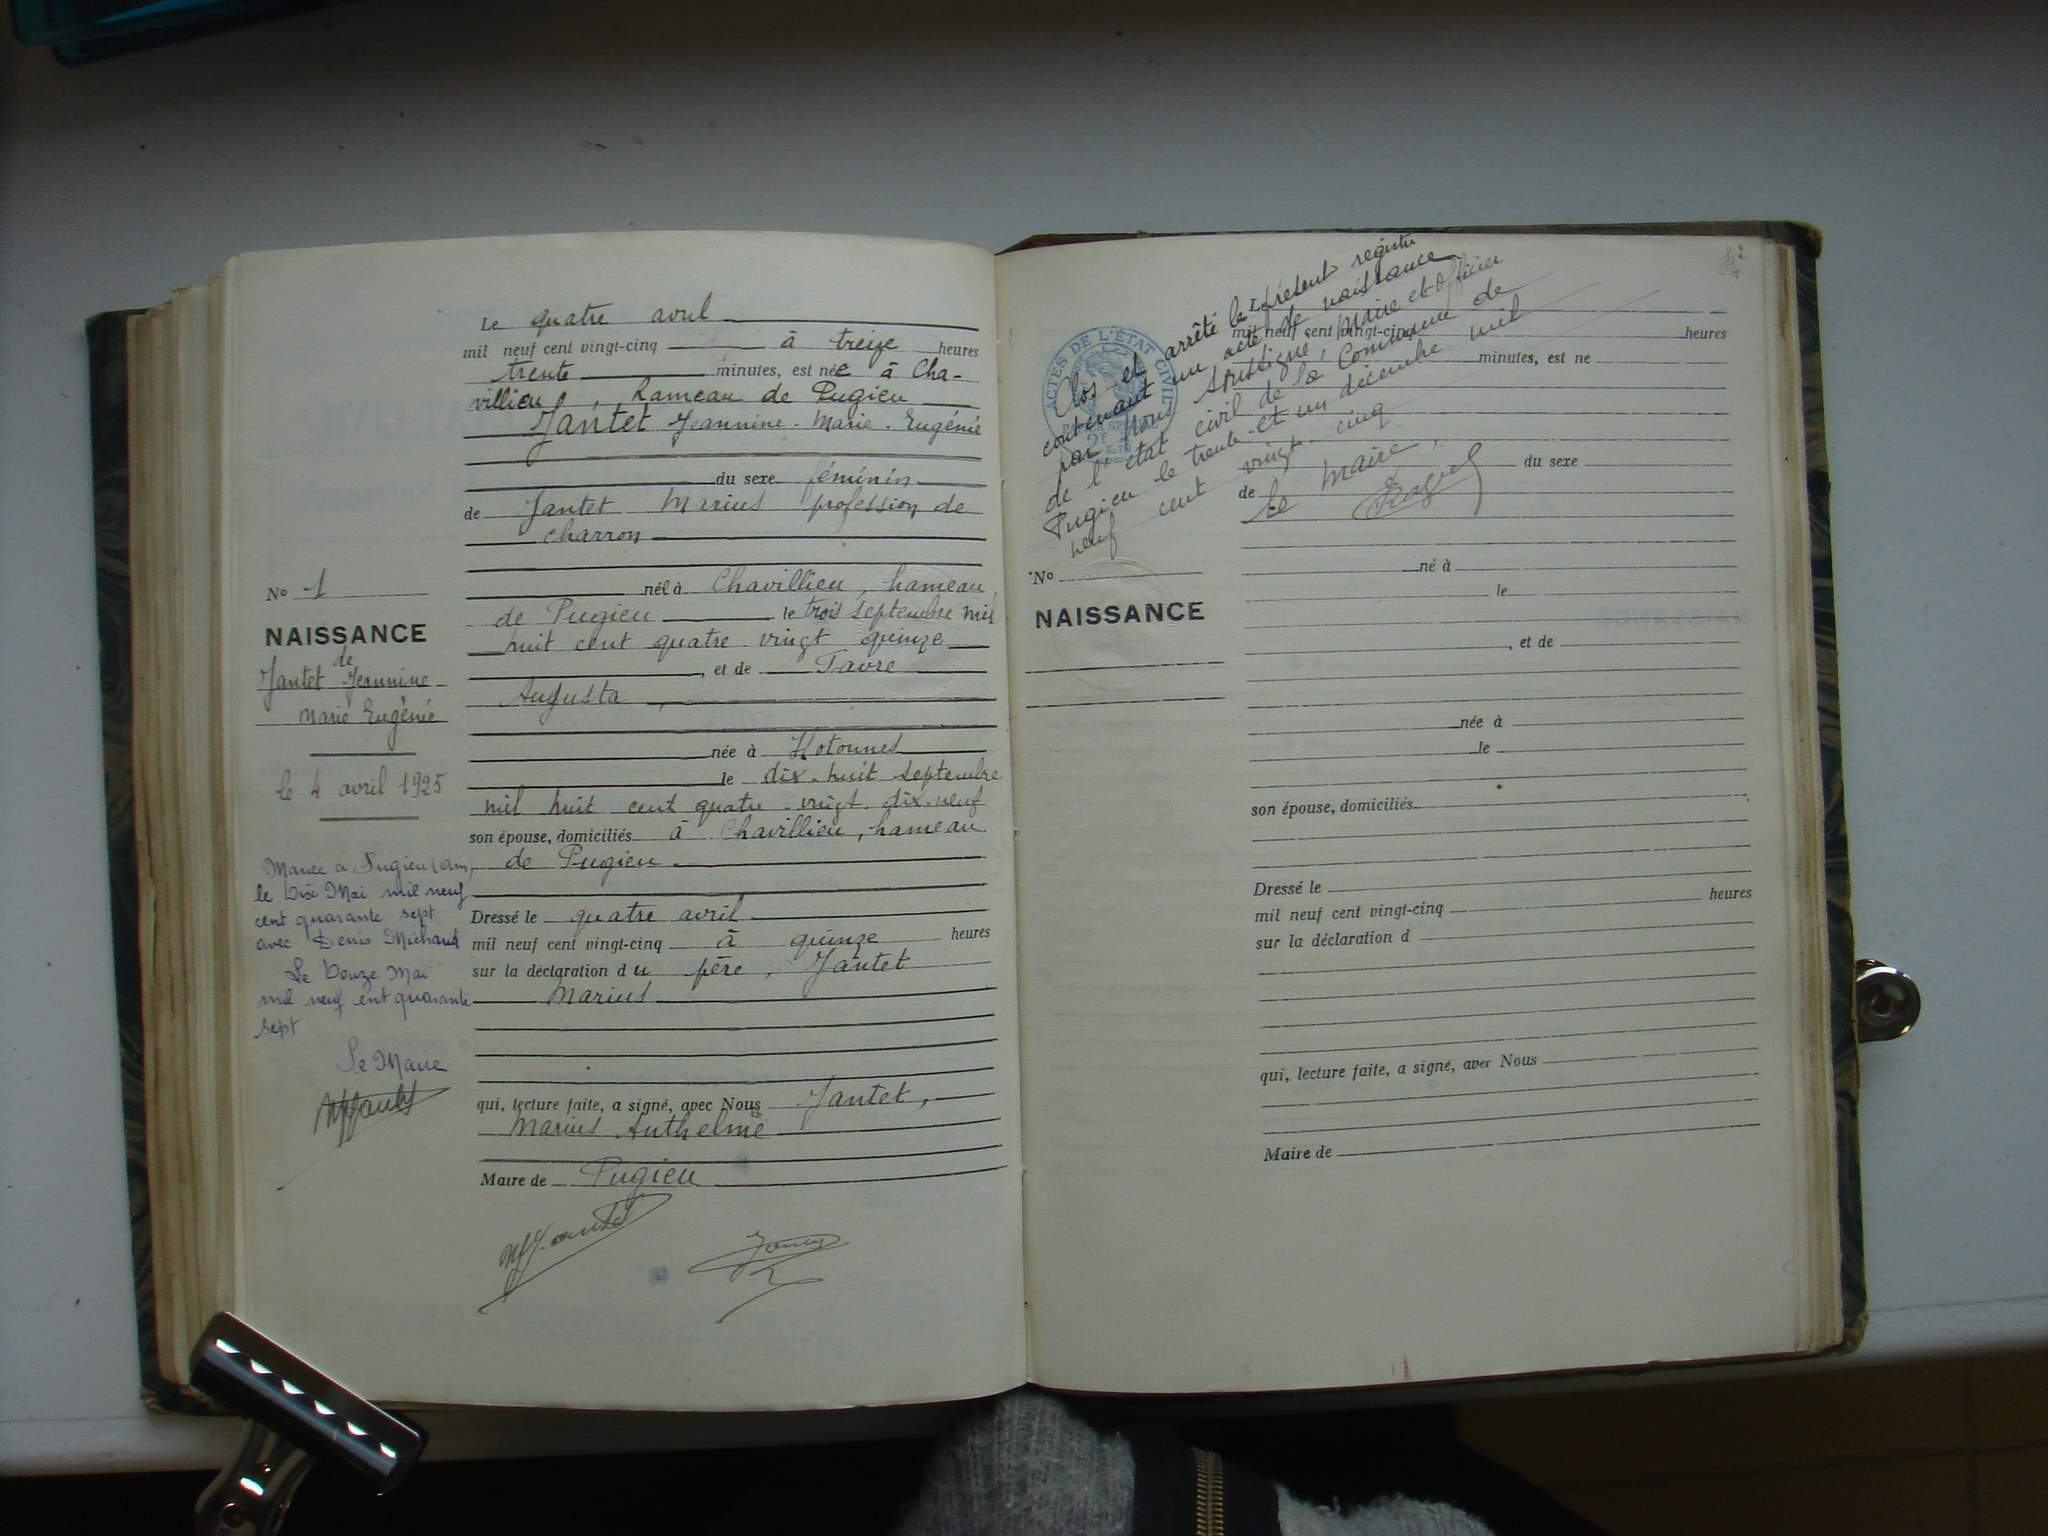 Le quatre avril
mil neuf cent vingt-cinq à treize heures
trente minutes, est née à Cha-
villieu, hameau de Pugieu
Jantet Jeannine - Marie - Eugénie
du sexe féminin
de Jantet Marius profession de
charron
né à Chavillieu, hameau
de Pugieu le trois septembre mil
huit cent quatre vingt quinze
, et de Favre
Augusta,
née à Hotonnes
le dix-huit septembre
mil huit cent quatre-vingt-dix-neuf
son épouse, domiciliés à Chavillieu, hameau
de Pugieu
Dressé le quatre avril
mil neuf cent vingt-cinq à quinze heures
sur la déclaration du père, Jantet
Marius
qui, lecture faite, a signé, avec Nous Jantet,
Marius Anthelme
Maire de Pugieu
No 1
NAISSANCE
de
Jantet Jeannine
Marie Eugénie
le 4 avril 1925
Mariée a Pugieu (Ain)
le Dix Mai mil neuf
cent quarante sept
avec Denis Michaud
Le Douze Mai
mil neuf cent quarante
sept
Le Maire
Clos et arrêté le présent registre
contenant un acte de naissance
par Nous soussigné, Maire et Officier
de l'état civil de la Commune de
Pugieu le trente-et un décembre mil
neuf cent vingt-cinq
Le Maire,
ACTES DE L'ÉTAT CIVIL
mil neuf cent vingt-cinq heures
minutes, est ne
du sexe
de
No
NAISSANCE
né à
le
, et de
née à
le
son épouse, domiciliés
Dressé le
mil neuf cent vingt-cinq heures
sur la déclaration d
qui, lecture faite, a signé, avec Nous
Maire de